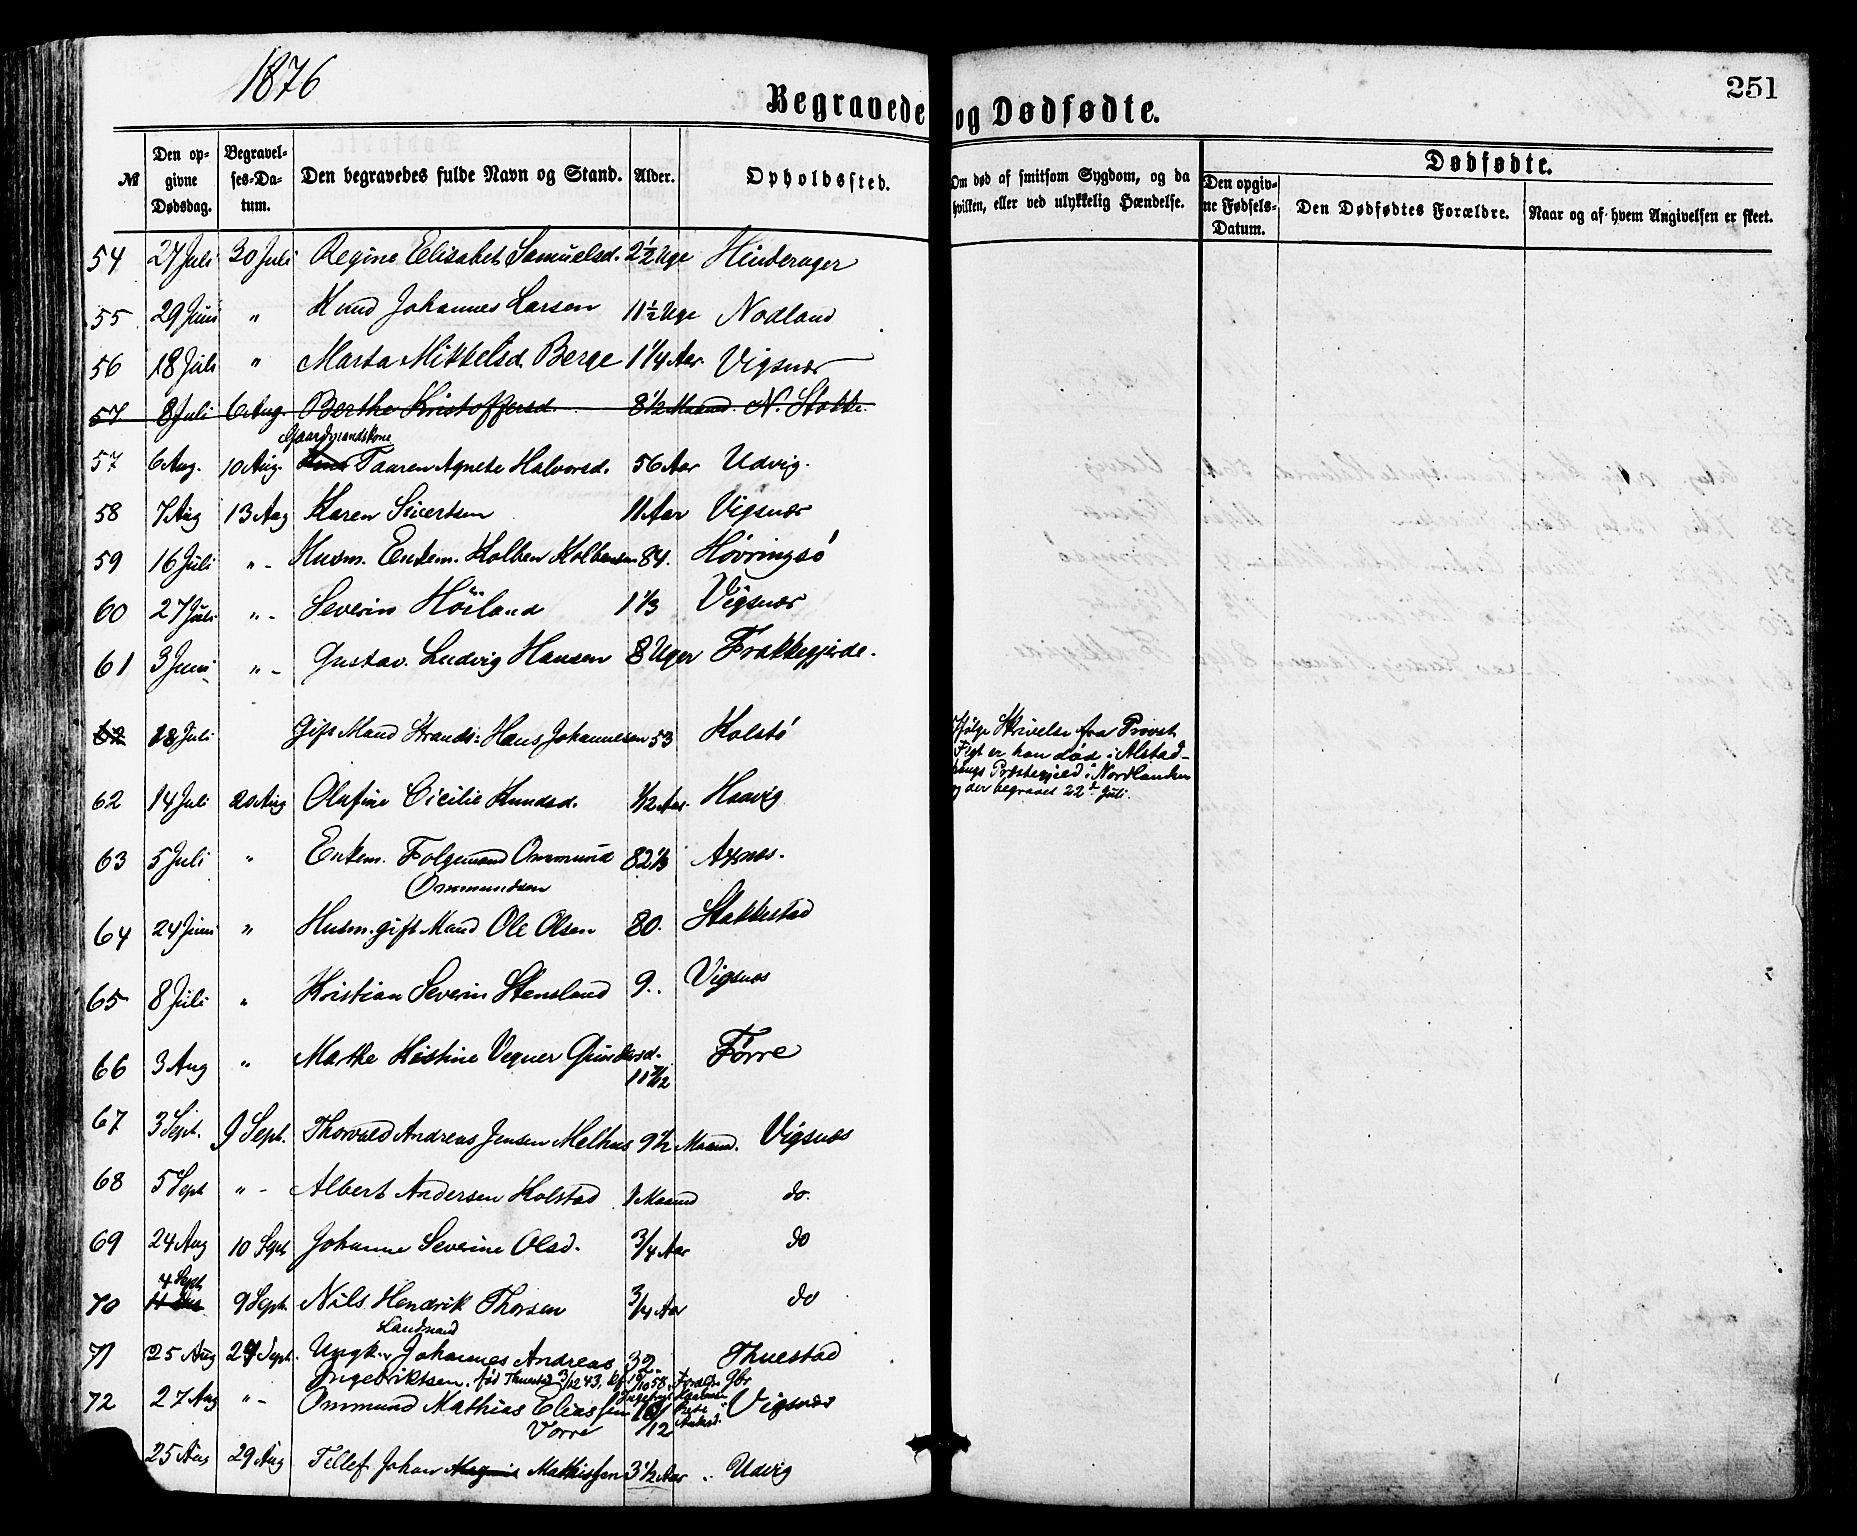 1876
251
Begravede og Dødfødte.
№ Den opgivne Dødsdag. Begravelses-Datum. Den begravedes fulde Navn og Stand. Alder. Opholdssted. Om død af smitsom Sygdom, og da hvilken, eller ved ulykkelig Hændelse. Dødfødte.
Den opgivne Fødsels-Datum. Den Dødfødtes Forældre. Naar og af hvem Angivelsen er skeet.
54 27 Juli 30 Juli Regine Elisabet Samuelsd. 2 1/2 Uge Hinderager
55 29 Juni " Knud Johannes Larsen 11 1/2 Uge Nodland
56 18 Juli " Marta Mikkelsd. Berge 1 1/4 Aar Vigsnæs
57 8 Juli 6 Aug. Berthe Kristoffersd. 8 1/2 Maaned. N. Stokke.
Gaardmandskone
57 6 Aug. 10 Aug. Taaren Agnete Halvorsd. 56 Aar Udvig.
58 7 Aug 13 Aug Karen Sivertsen 11 Aar Vigsnæs
59 16 Juli "- Husm. Enkem. Kolben Kolbensen 84. Høvringsø
60 27 Juli "- Severin Höiland 1 1/3 Vigsnæs
61 3 Juni "- Gustav Ludvig Hansen 8 Uger Frakkegjerde.
62 18 Juli Gift Mand Strands: Hans Johannesen 53 Kolstø
Ifølge Skrivelse fra Provst
er han død i Alstad-
haugs Præstegjeld i Nordlanden
og der begravet 22de Juli.
62 14 Juli 20 Aug Olafine Cicilie Knudsd. 1/2 Aar Haavig
63 5 Juli " Enkem. Folgemand Ommund 82 1/3 Axnæs.
Ommundsen
64 24 Juni " Husm. gift Mand Ole Olsen 80. Stakkestad
65 8 Juli " Kristian Severin Stensland 9. Vigsnæs
66 3 Aug " Marthe Kristine Vegner Gundersd. Førre
67 3 Sept. 9 Sept. Thorvald Andreas Jensen Melhus 9 1/2 Maaned. Vigsnæs
68 5 Sept "- Albert Andersen Holstad 1 Maaned do.
69 24 Aug 10 Sept Johanne Severine Olsd. 3/4 Aar do
4 Sept
70 9 Sept. Nils Hendrik Thorsen 3/4 Aar do
Landmand
71 25 Aug 24 Sept. Ungk. Johannes Andreas 32 Thuestad
Ingebriktsen. fød Thuestad 3/12 43. Kf. 58. Forældre Gbr
72 27 Aug "- Ommund Mathias Eliassen Vigsnæs
Vorre
25 Aug 29 Aug Tellef Johan Mathissen 3 1/2 Aar Udvig